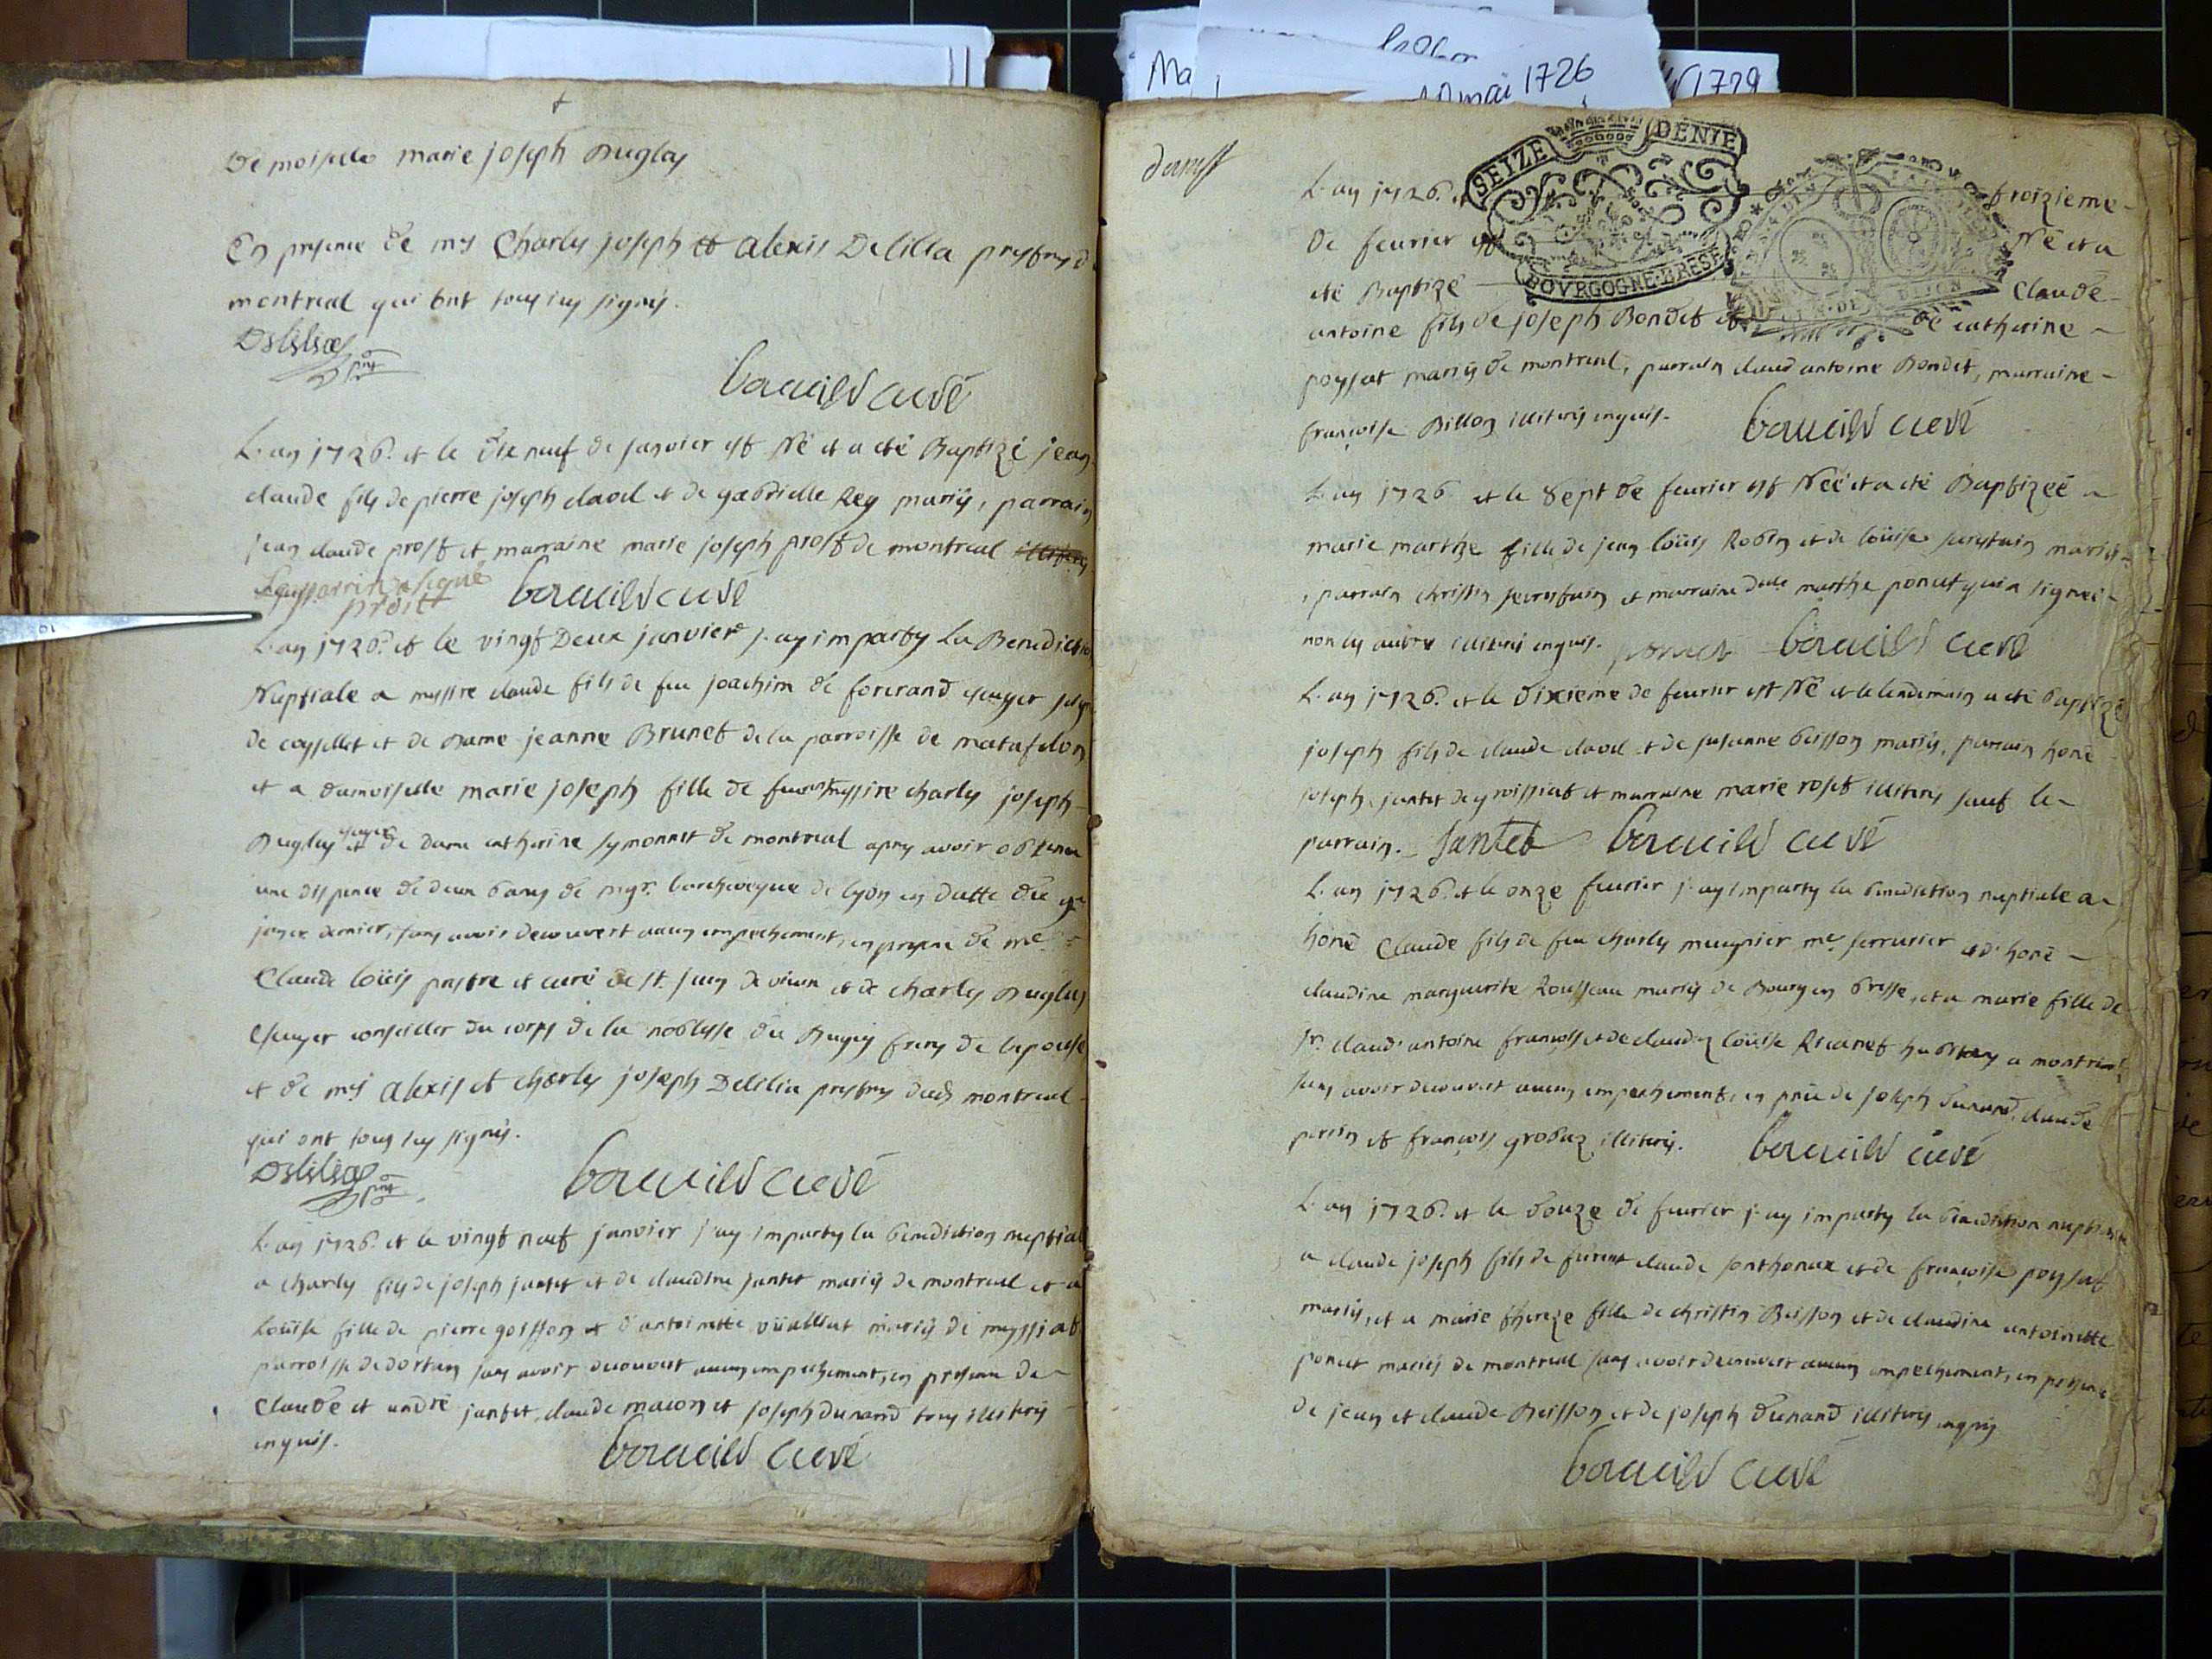 Ma
10 mai 1726
1729
Demoiselle marie joseph Duglas
En presence de mrs Charles joseph et alexis Delilia prestres d
montreal qui ont tous icy signés.
Delilia
ptre
curé
L'an 1726. et le dix neuf de janvier est Né et a eté Baptizé jean
claude fils de pierre joseph et de gabrielle Rey mariés, parrain
jean claude prost et marraine marie joseph prost de montreal
Le parrin a signé
prost
curé
L'an 1726. et le vingt Deux janvier j'ay imparty La Benediction
Nuptiale a messire claude fils de feu joachim de forcrand escuyer seigr
de coysellet et de Dame jeanne Brunet de la parroisse de matafelon
et a damoiselle marie joseph fille de messire charles joseph
Duglas escuyer et de dame catherine symonnet de montreal apres avoir obtenu
une dispence de deux bans de mgr. l'archeveque de lyon en datte du
janvier dernier, sans avoir decouvert aucun empechement, en presence de me
Claude loüis prestre et curé de st. jean de et de charles Duglas
escuyer conseiller du corps de la noblesse du Bugey frere de l'epouse
et de mrs alexis et charles joseph Delilia prestres dudt montreal
qui ont tous icy signés.
Delilia
ptre
curé
L'an 1726. et le vingt neuf janvier j'ay imparty la benediction nuptial
a charles fils de joseph jantet et de claudine jantet mariés de montreal et a
Loüise fille de pierre goiffon et d'antoinette vuaillat mariés de meyssiat
parroisse de dortan sans avoir decouvert aucun empechement, en presence de
Claude et andre jantet, claude macon et joseph dunand tous illiterés
enquis.
curé
SEIZE DENIE
BOVRGOGNE·BRESE
DIJON
L'an 1726. et troizieme
de feurier est Né et a
eté Baptizé Claude
antoine fils de joseph Bondet et de catherine
poysat mariés de montreal, parrain claud antoine Bondet, marraine
françoise Billon illiterés enquis.
curé
L'an 1726 et le sept de feurier est Néé et a eté Baptizéé
marie marthe fille de jean loüis Robin et de loüise mariés
, parrain christin et marraine dlle marthe poncet qui a signéé
non les autres illiterés enquis. poncet
curé
L'an 1726. et le dixieme de feurier est Né et le lendemain a eté baptizé
joseph fils de claude et de susanne beisson mariés, parrain honé
joseph jantet de groissiat et marraine marie roset illiterés sauf le
parrain. Jantet
curé
L'an 1726. et le onze feurier j'ay imparty la benediction nuptiale a
honé Claude fils de feu charles meugnier me. serrurier et d'honé
claudine marguerite Rousseau mariés de Bourg en bresse, et a marie fille de
sr. claud' antoine françois et de loüise a montreal
sans avoir decouvert aucun empechement, en pnce de joseph dunand, claude
perrin et françois grobaz illiterés.
curé
L'an 1726. et le douze de feurier j'ay imparty la benediction nuptiale
a claude joseph fils de claude sonthonax et de françoise poysat
mariés, et a marie thereze fille de christin Beisson et de claudine antoinette
poncet mariés de montreal sans avoir decouvert aucun empechement, en presence
de jean et claude Beisson et de joseph dunand illiterés enquis
curé